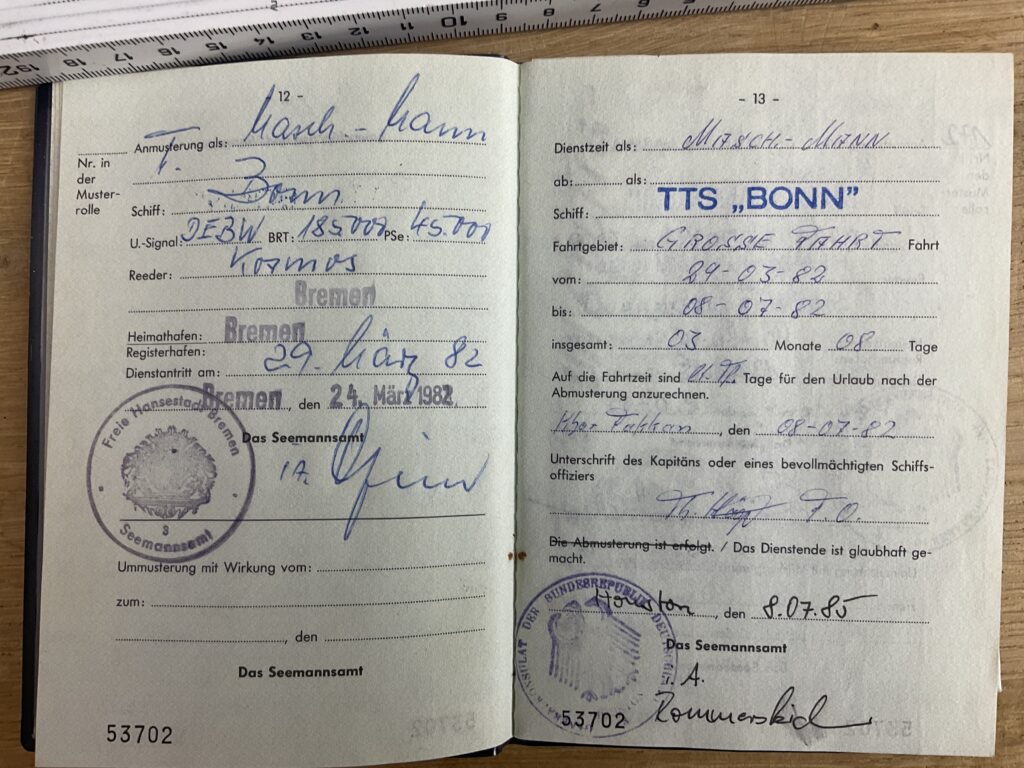 12 13 14 15 16 17 18 19 2
11 10 9 8 7 6 5
- 12 -
Anmusterung als: Masch.-Mann
Nr. in
der
Muster-
rolle
T.
Schiff: Bonn
U.-Signal: DEBW BRT: 185000 PSe: 45.000
Reeder: Kosmos
Bremen
Heimathafen: Bremen
Registerhafen:
Dienstantritt am: 29. März 82
Bremen, den 24. März 1982.
Freie Hansestadt Bremen
3
Seemannsamt
Das Seemannsamt
i.A.
Ummusterung mit Wirkung vom:
zum:
, den
Das Seemannsamt
53702
- 13 -
Dienstzeit als: MASCH.-MANN
ab: als:
Schiff: TTS „BONN”
Fahrtgebiet: GROSSE FAHRT Fahrt
vom: 29-03-82
bis: 08-07-82
insgesamt: 03 Monate 08 Tage
Auf die Fahrtzeit sind Tage für den Urlaub nach der
Abmusterung anzurechnen.
Khor Fakkan, den 08-07-82
Unterschrift des Kapitäns oder eines bevollmächtigten Schiffs-
offiziers
Th. F.O.
Die Abmusterung ist erfolgt. / Das Dienstende ist glaubhaft ge-
macht.
Houston, den 8.07.85
KONSULAT DER BUNDESREPUBLIK DEUTSCHLAND
Das Seemannsamt
i. A.
Rommerskid
53702